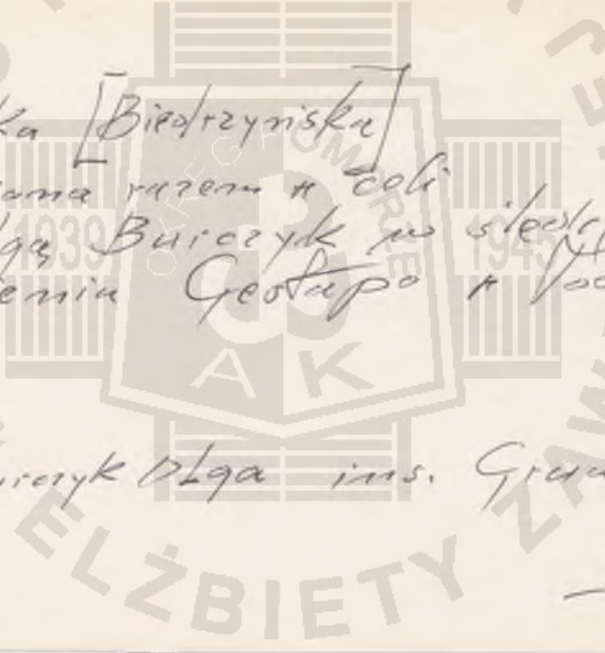 ka [Biedrzyńska]
iana razem w celi
lgą Burczyk w śledc
eniu Gestapo w
urczyk Olga ins. Gru
OKRĘG POMORZE
1939 1945
AK
ELŻBIETY ZAW